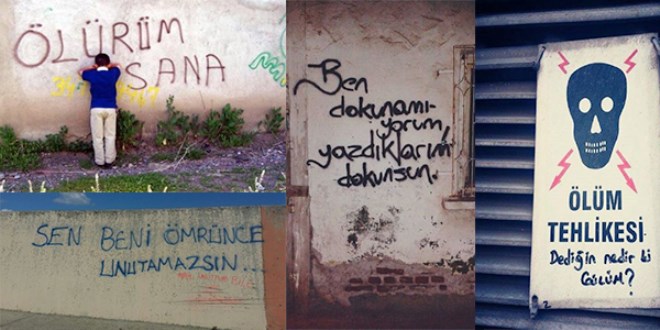 ÖLÜRÜM
SANA
SEN BENİ ÖMRÜNCE
UNUTAMAZSIN...
Ben
dokunamı-
yorum,
yazdıklarım
dokunsun.
ÖLÜM
TEHLİKESİ
Dediğin nedir ki
GÜLÜM?